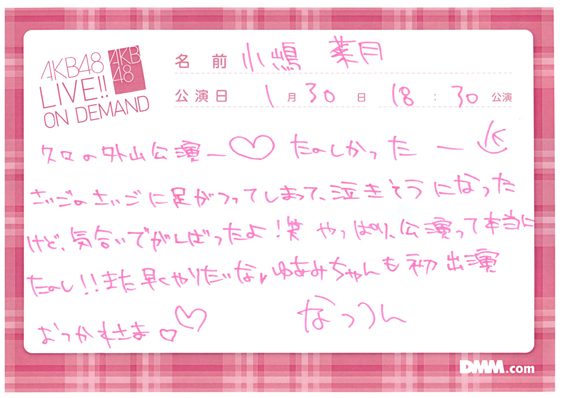 AKB48
LIVE!!
ON DEMAND
AKB
48
名前 小嶋 菜月
公演日 1月30日 18:30公演
久々の外山公演ー♡ たのしかったー
さいごのさいごに足がつってしまって、泣きそうになった
けど、気合いでがんばったよ!笑 やっぱり、公演って本当に
たのし!!また早くやりたいな♪ゆあみちゃんも初出演
おつかれさま♡
なっつん
DMM.com